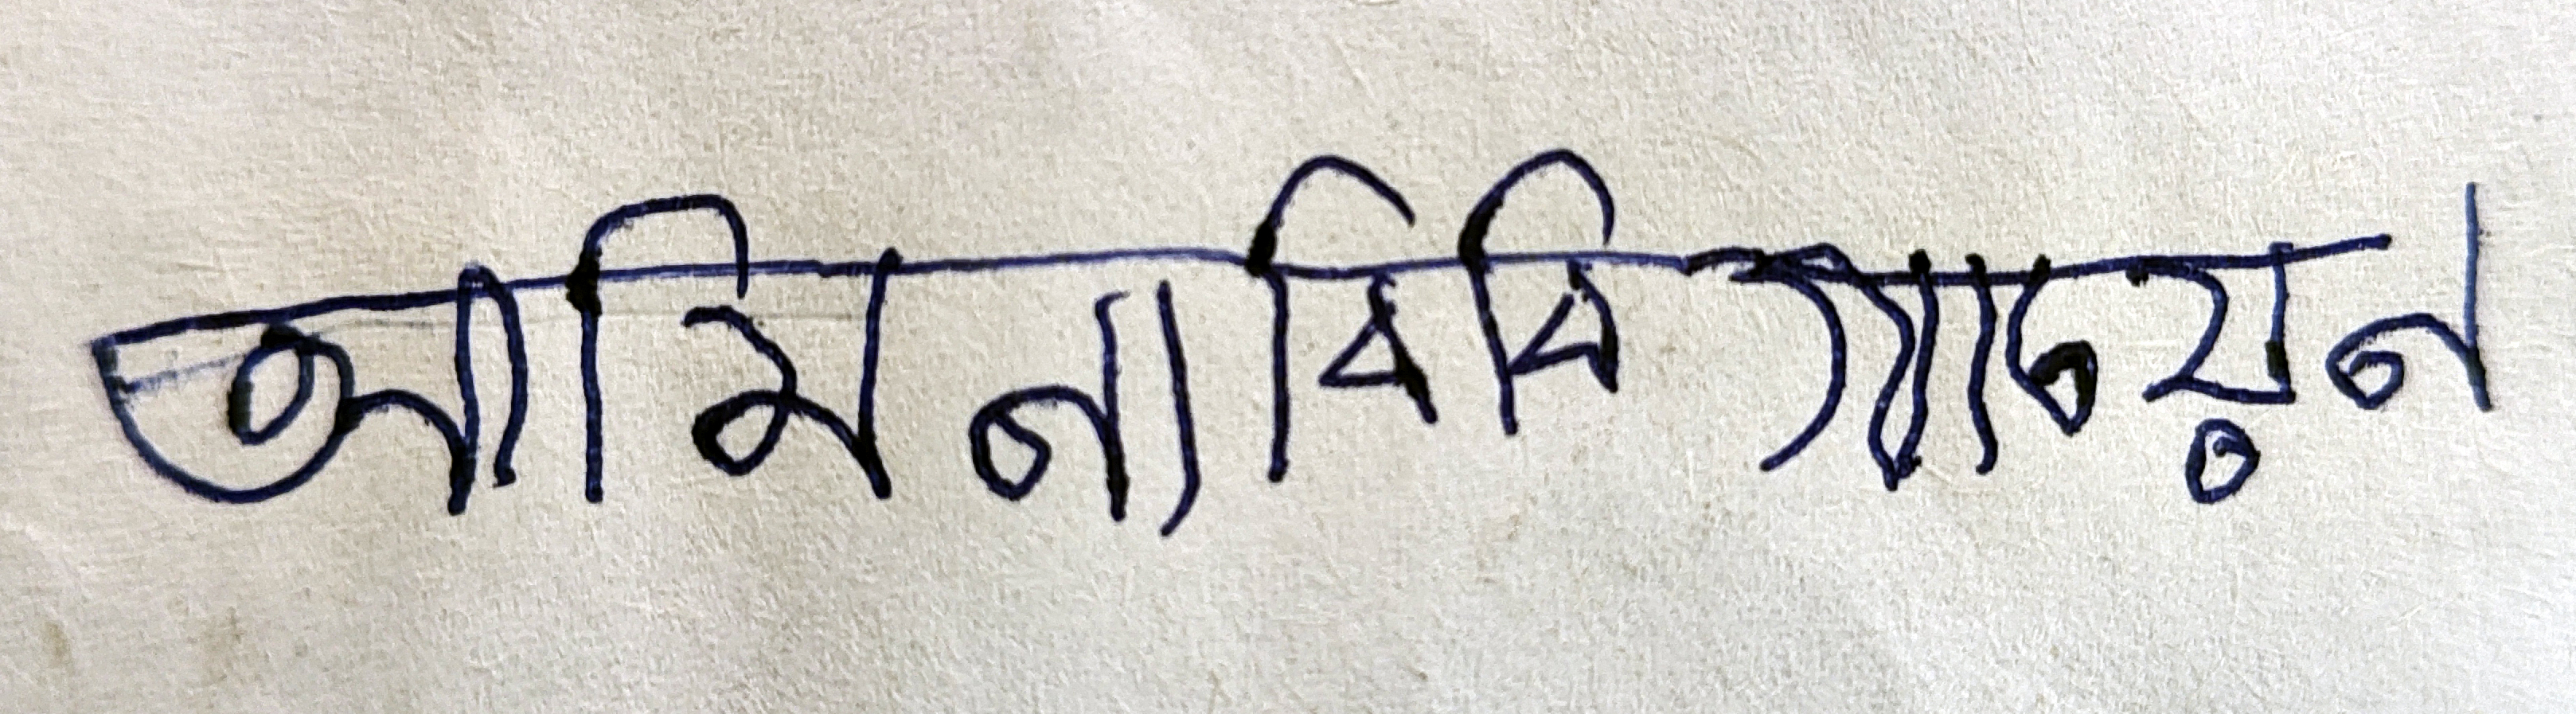 আমিনা বিবি গায়েন